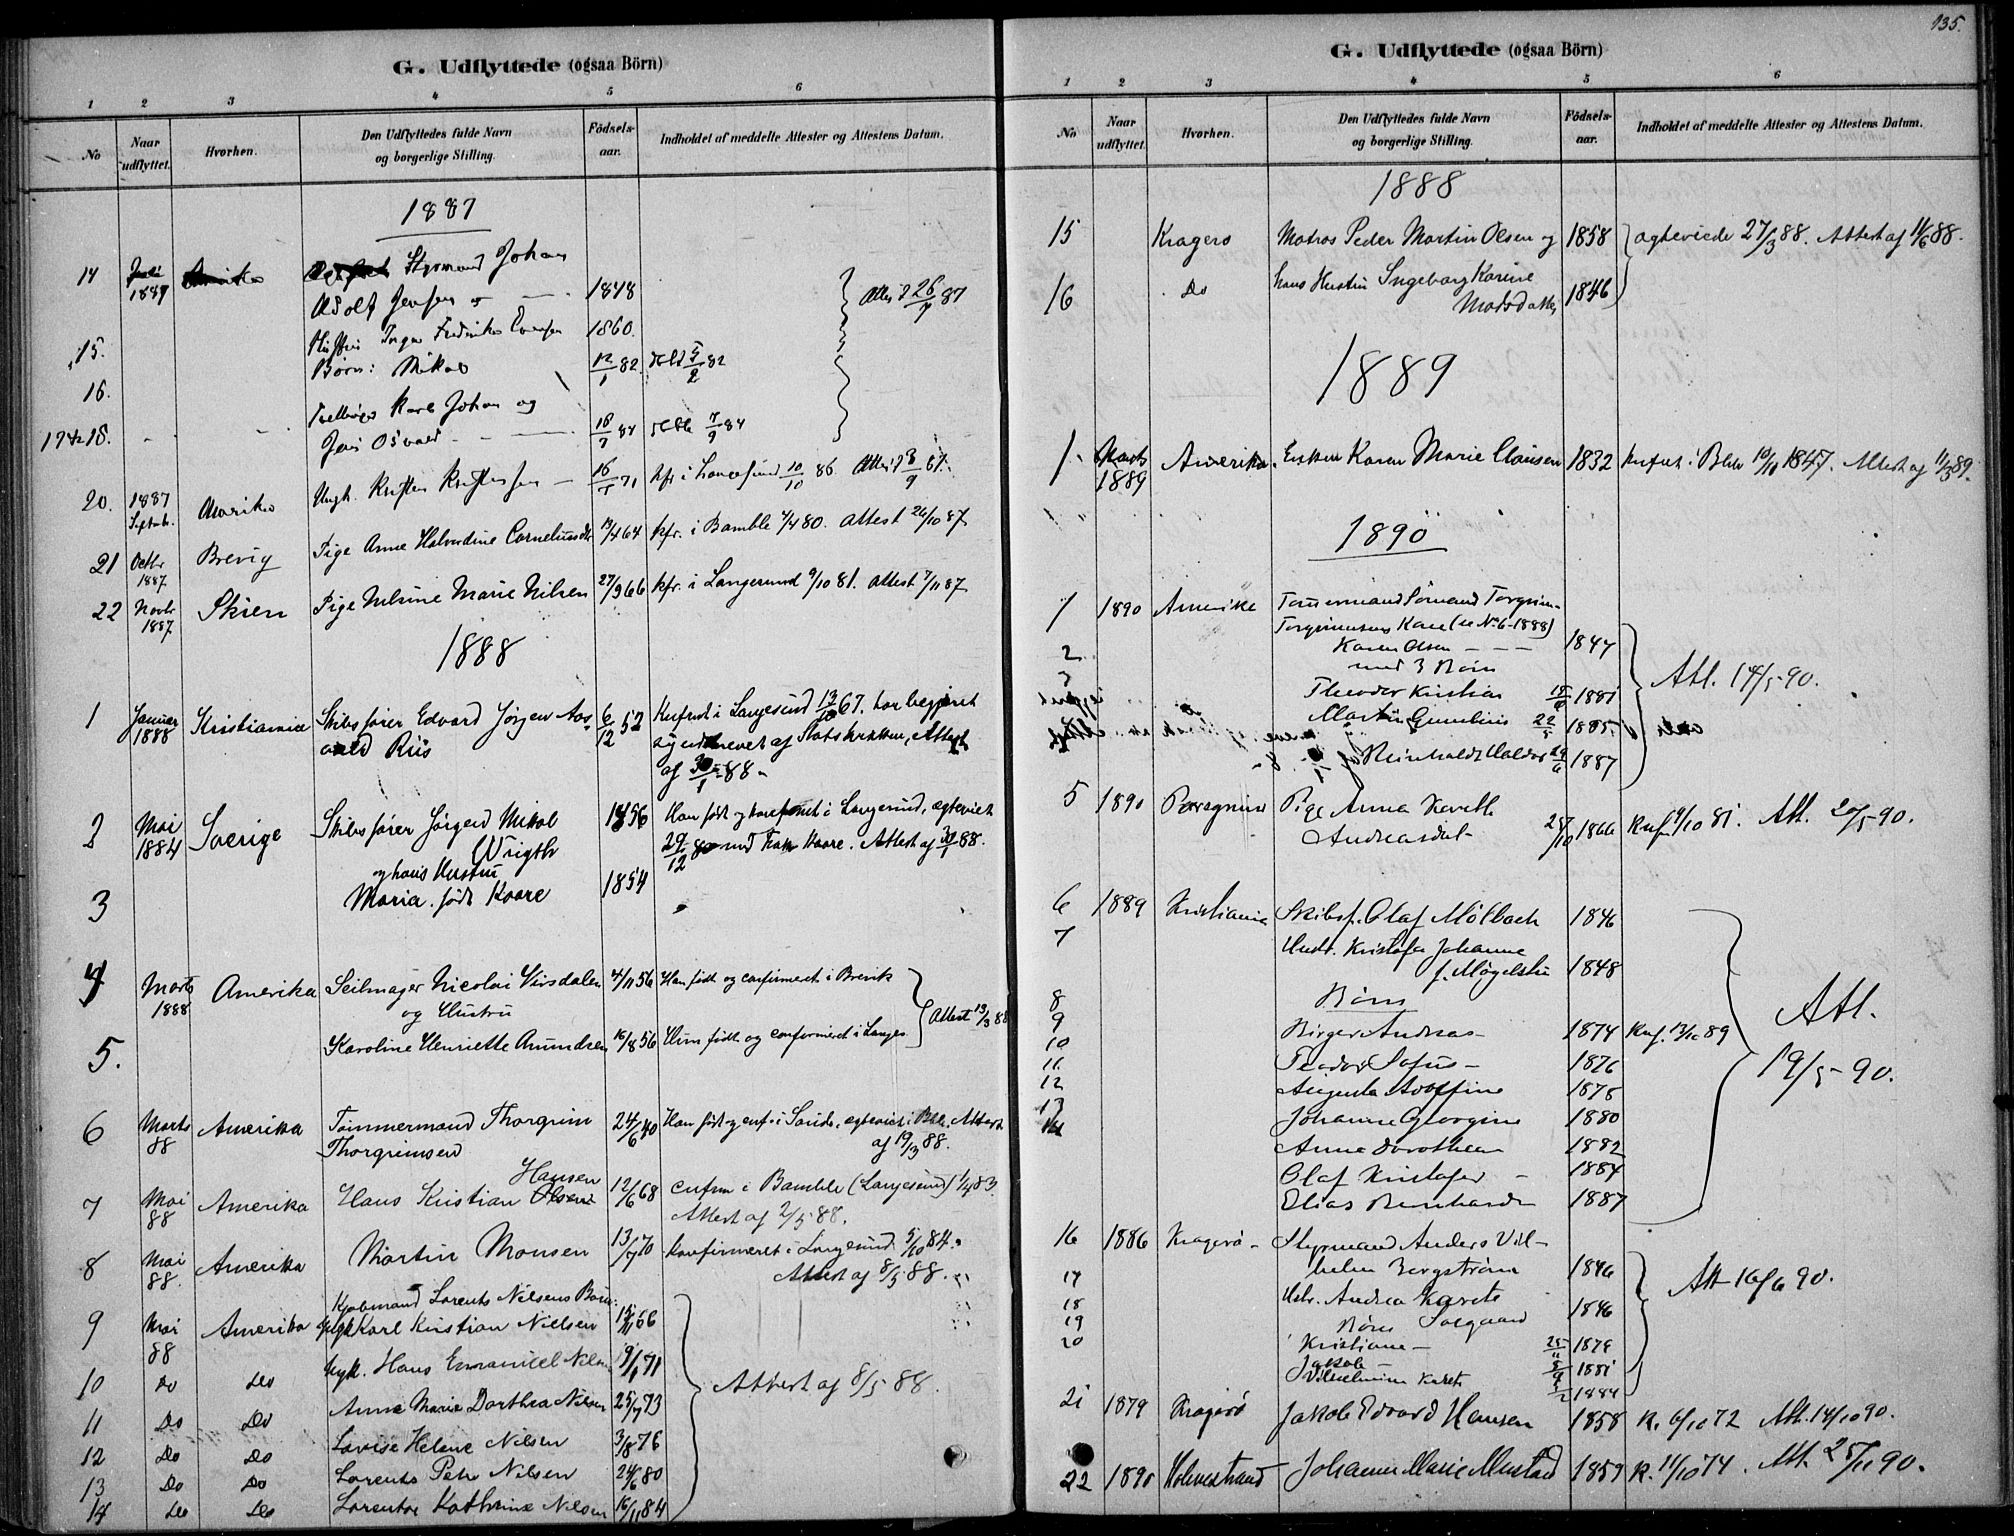 G. Udflyttede (ogsaa Börn)
1 2 3 4 5 6
No
Naar udflyttet.
Hvorhen.
Den Udflyttedes fulde Navn og borgerlige Stilling.
Fødsels-aar.
Indholdet af meddelte Attester og Attestens Datum.
1887
14 1887 Styrmand Johan
Adolf Jensen og 1848 Attest 26/7 87
15. Inger Fredrikke 1860.
16. Børn: 12/1 82 5/2 82
Karl Johan og
17 & 18. Jens Osvald 18/7 84 7/9 84
20. 1887 Septmb. Amerika Ungk. 16/5 71 kfr. i Langesund 10/10 86. Attest 3/9 87.
21 Octbr 1887. Brevig Pige Anne Halvordine Corneliusdtr 13/4 64 kfr. i Bamble 4/4 80. Attest 26/10 87
22 Novbr 1887. Skien Pige Nilsine Marie Nilsen 27/9 66 kfr. i Langesund 9/10 81. Attest 7/11 87
1888
1 Januar 1888 Kristiania Skibsfører Edvard Jørgen Aas- 6/12 52 Knfrmt i Langesund 13/10 67. har begjæret
vald Riis sig udskrevet af Statskirken, Attest
af 30/1 88.
2 Mai 1884 Sverige Skibsfører Jørgen Nikol 1856 Han født og konfrmt i Langesund, egteviet
Wrigth 29/12 80 med Frøken Kaare. Attest af 30/1 88.
og hans Hustru
3 Maria. født Kaare 1854
4 Marts 1888 Amerika Seilmager Nicolai Virsdalen 4/11 56 Han født og confirmeret i Brevik
og Hustru Attest 13/3 88
5. Karoline Henriette Amundsen 16/8 56 Hun født og confirmeret i Langes
6 Marts 88 Amerika Tømmermand Thorgrim 24/6 40 Han født og cnf. i Sanide, egteviet i Bble. Attest
Thorgrimsen af 19/3 88.
Hansen
7 Mai 88 Amerika Hans Kristian Olsen 12/6 68 cnfrm i Bamble (Langesund) 1/4 83.
Attest af 2/5 88.
8 Mai 88. Amerika Martin Monsen 13/7 70 Konfirmeret i Langesund 5/10 84.
Attest af 8/5 88.
Kjøbmand Lorents Nilsens Børn:
9 Mai 88 Amerika Ungk Karl Kristian Nielsen 12/11 66
10 Do Do Ungk. Hans Emanuel Nilsen 9/1 71 Attest af 8/5 88.
11 Do Do Anne Marie Dorthea Nilsen 25/7 73
12 Do Do Lovise Helene Nilsen 3/8 76
13 Do Do Lorents Petr Nilsen 24/6 80
14 Do Do Lorentse Kathrine Nilsen 16/11 84
135.
G. Udflyttede (ogsaa Börn)
1 2 3 4 5 6
No
Naar udflyttet.
Hvorhen.
Den Udflyttedes fulde Navn og borgerlige Stilling.
Fødsels-aar.
Indholdet af meddelte Attester og Attestens Datum.
1888
15 Kragerø Matros Peder Martin Olsen og 1858 egteviede 27/3 88. Attest af 11/6 88.
16 Do hans Hustru Ingeborg Karine
Madsdatter 1846
1889
1. Marts 1889 Amerika. Enken Karen Marie Clausen 1832 Knfrmt i Bble 10/10 1847. Attest af 11/3 89.
1890
1 1890 Amerika Tømermand Tørmand Torgrim
Torgrimsens Kone (se No 6-1888)
2 Karen Olsen 1847
med 3 Børn
Theodor Kristian 18/6 1881 Att. 14/5 90.
Martin Gunelius 22/5 1885
Reinholdt Haldor 29/6 1887
5 1890 Porsgrund Pige Anna Kareth
Andreasdat 25/10 1866 Knf. 9/10 81. Att. 20/5 90.
6 1889 Kristiania Skibsf. Olaf Mölbach 1846
7 Hustr. Kristofa Johanne
f. Møgelstu 1848
8 Børn
9 Birger Andreas 1874 Knf. 13/10 89 Att.
10 Teodor Sofus 1876 19/5 90.
11. Augusta Adolfine 1878
12 Johanne Georgine 1880
13 Anna Dorothea 1882
14 Olaf Kristofer 1884
Elias Bernhard 1887
16 1886 Kragerø Styrmand Anders Vil-
helm Bergstrøm 1846 Att 16/6 90.
17 Hstr. Andrea Karete
18 Solgaard 1846
19 Børn
20 Kristiane 25/11 1879
Jakob 8/9 1881
Vilhelmine Karete 1884
21 1879 Kragerø Jakob Edvard Hansen 1858 K. 6/10 72 Att. 14/10 90.
22 1890 Holmestrand Johanne Marie Mustad 1859 K. 11/10 74. Att. 25/11 90.